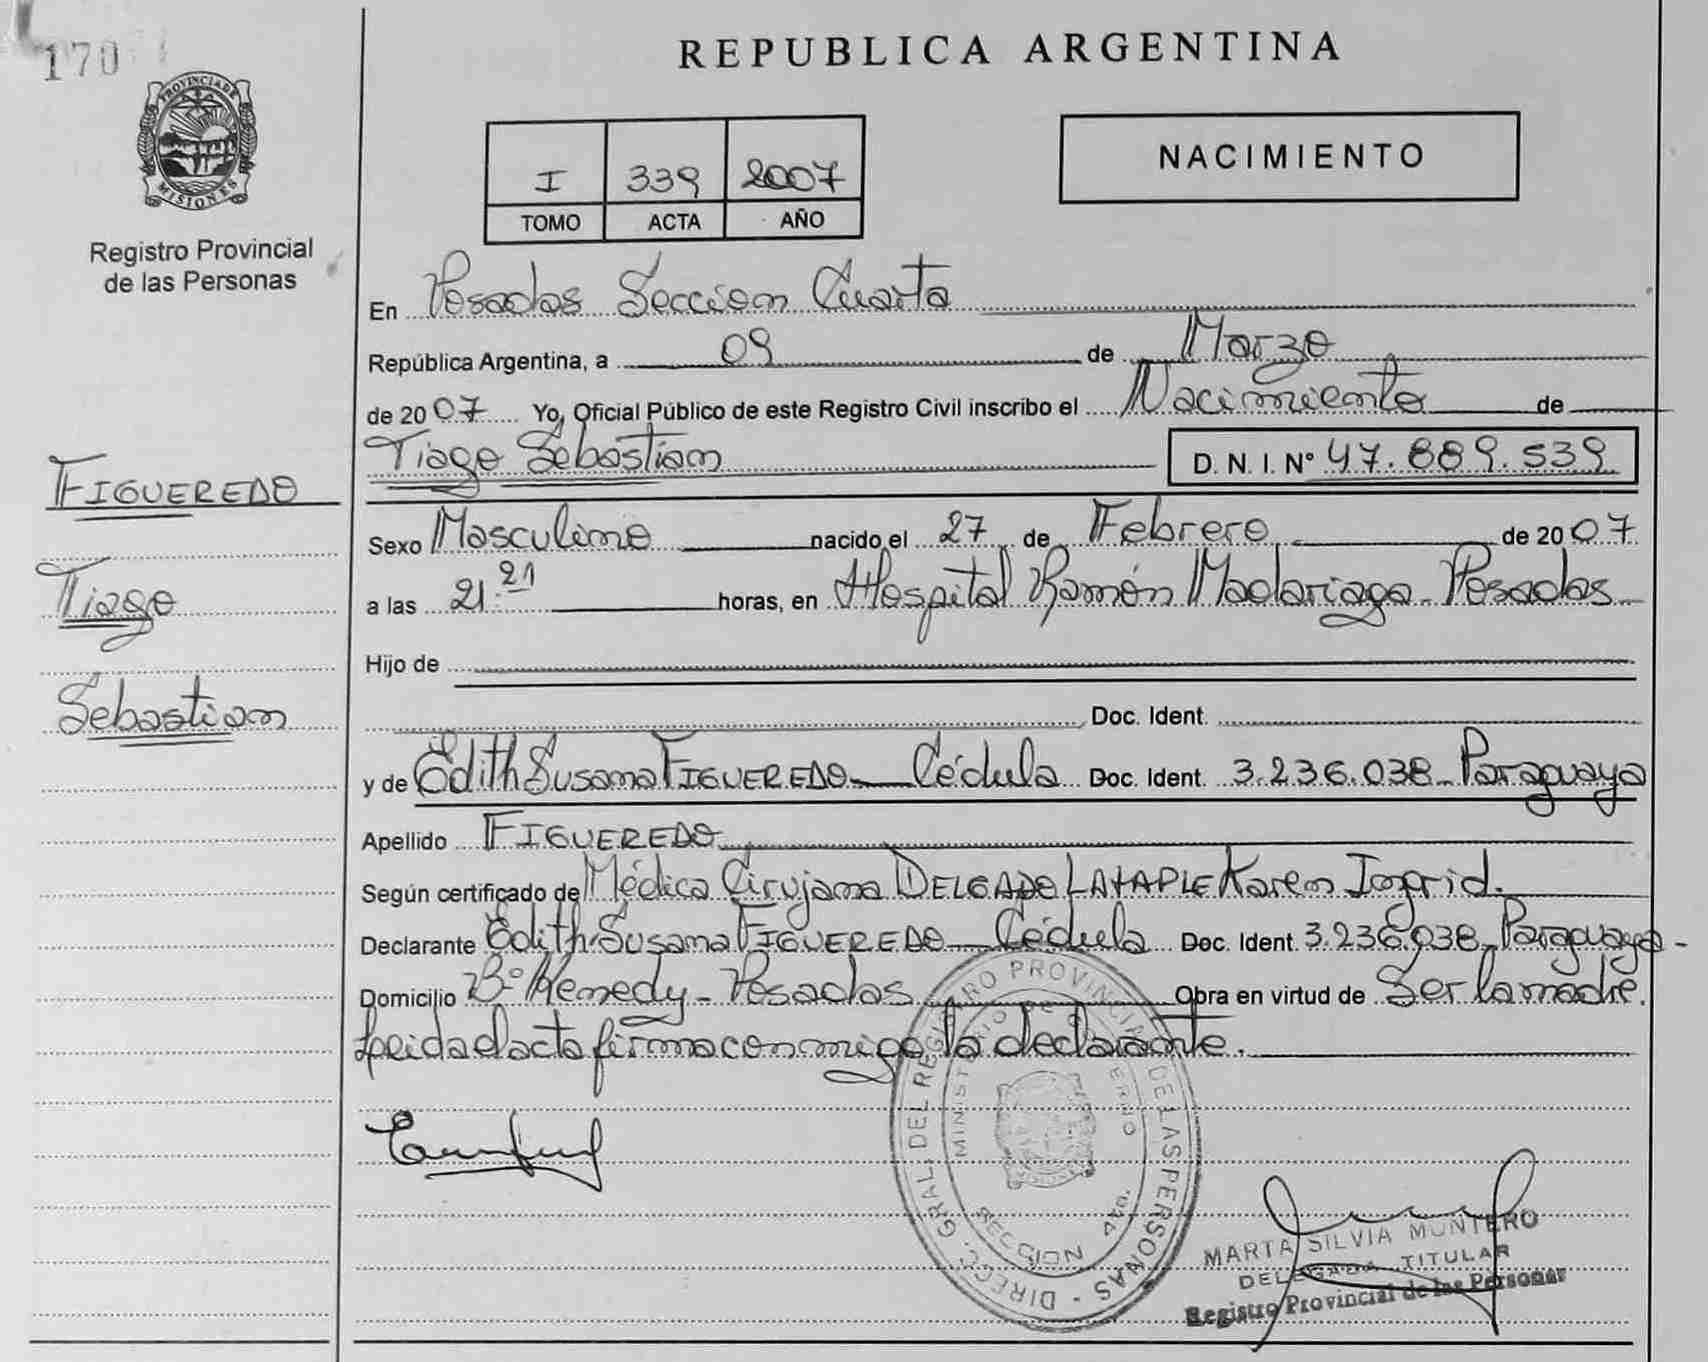 170
PROVINCIA DE
MISIONES
Registro Provincial
de las Personas
REPUBLICA ARGENTINA
I 339 2007
TOMO ACTA AÑO
NACIMIENTO
En Posadas Sección Cuarta
República Argentina, a 09 de Marzo
de 2007 Yo, Oficial Público de este Registro Civil inscribo el Nacimiento de
Tiago Sebastian D. N. I. Nº 47.889.539
FIGUEREDO
Tiago
Sebastian
Sexo Masculino nacido el 27 de Febrero de 2007
a las 21.21 horas, en Hospital Ramón Madariaga - Posadas
Hijo de
Doc. Ident.
y de Edith Susana FIGUEREDO - Cédula Doc. Ident. 3.236.038 - Paraguaya
Apellido FIGUEREDO
Según certificado de Médica Cirujana DELGADO Karen Ingrid.
Declarante Edith Susana FIGUEREDO - Cédula Doc. Ident. 3.236.038 - Paraguaya -
Domicilio Bº Kenedy - Posadas Obra en virtud de Ser la madre.
Leida el acta firma conmigo la declarante.
DIRECC. GRAL. DEL REGISTRO PROVINCIAL DE LAS PERSONAS -
MINISTERIO DE GOBIERNO
SECCIÓN 4ta.
MARTA SILVIA MONTERO
DELEGADA TITULAR
Registro Provincial de las Personas